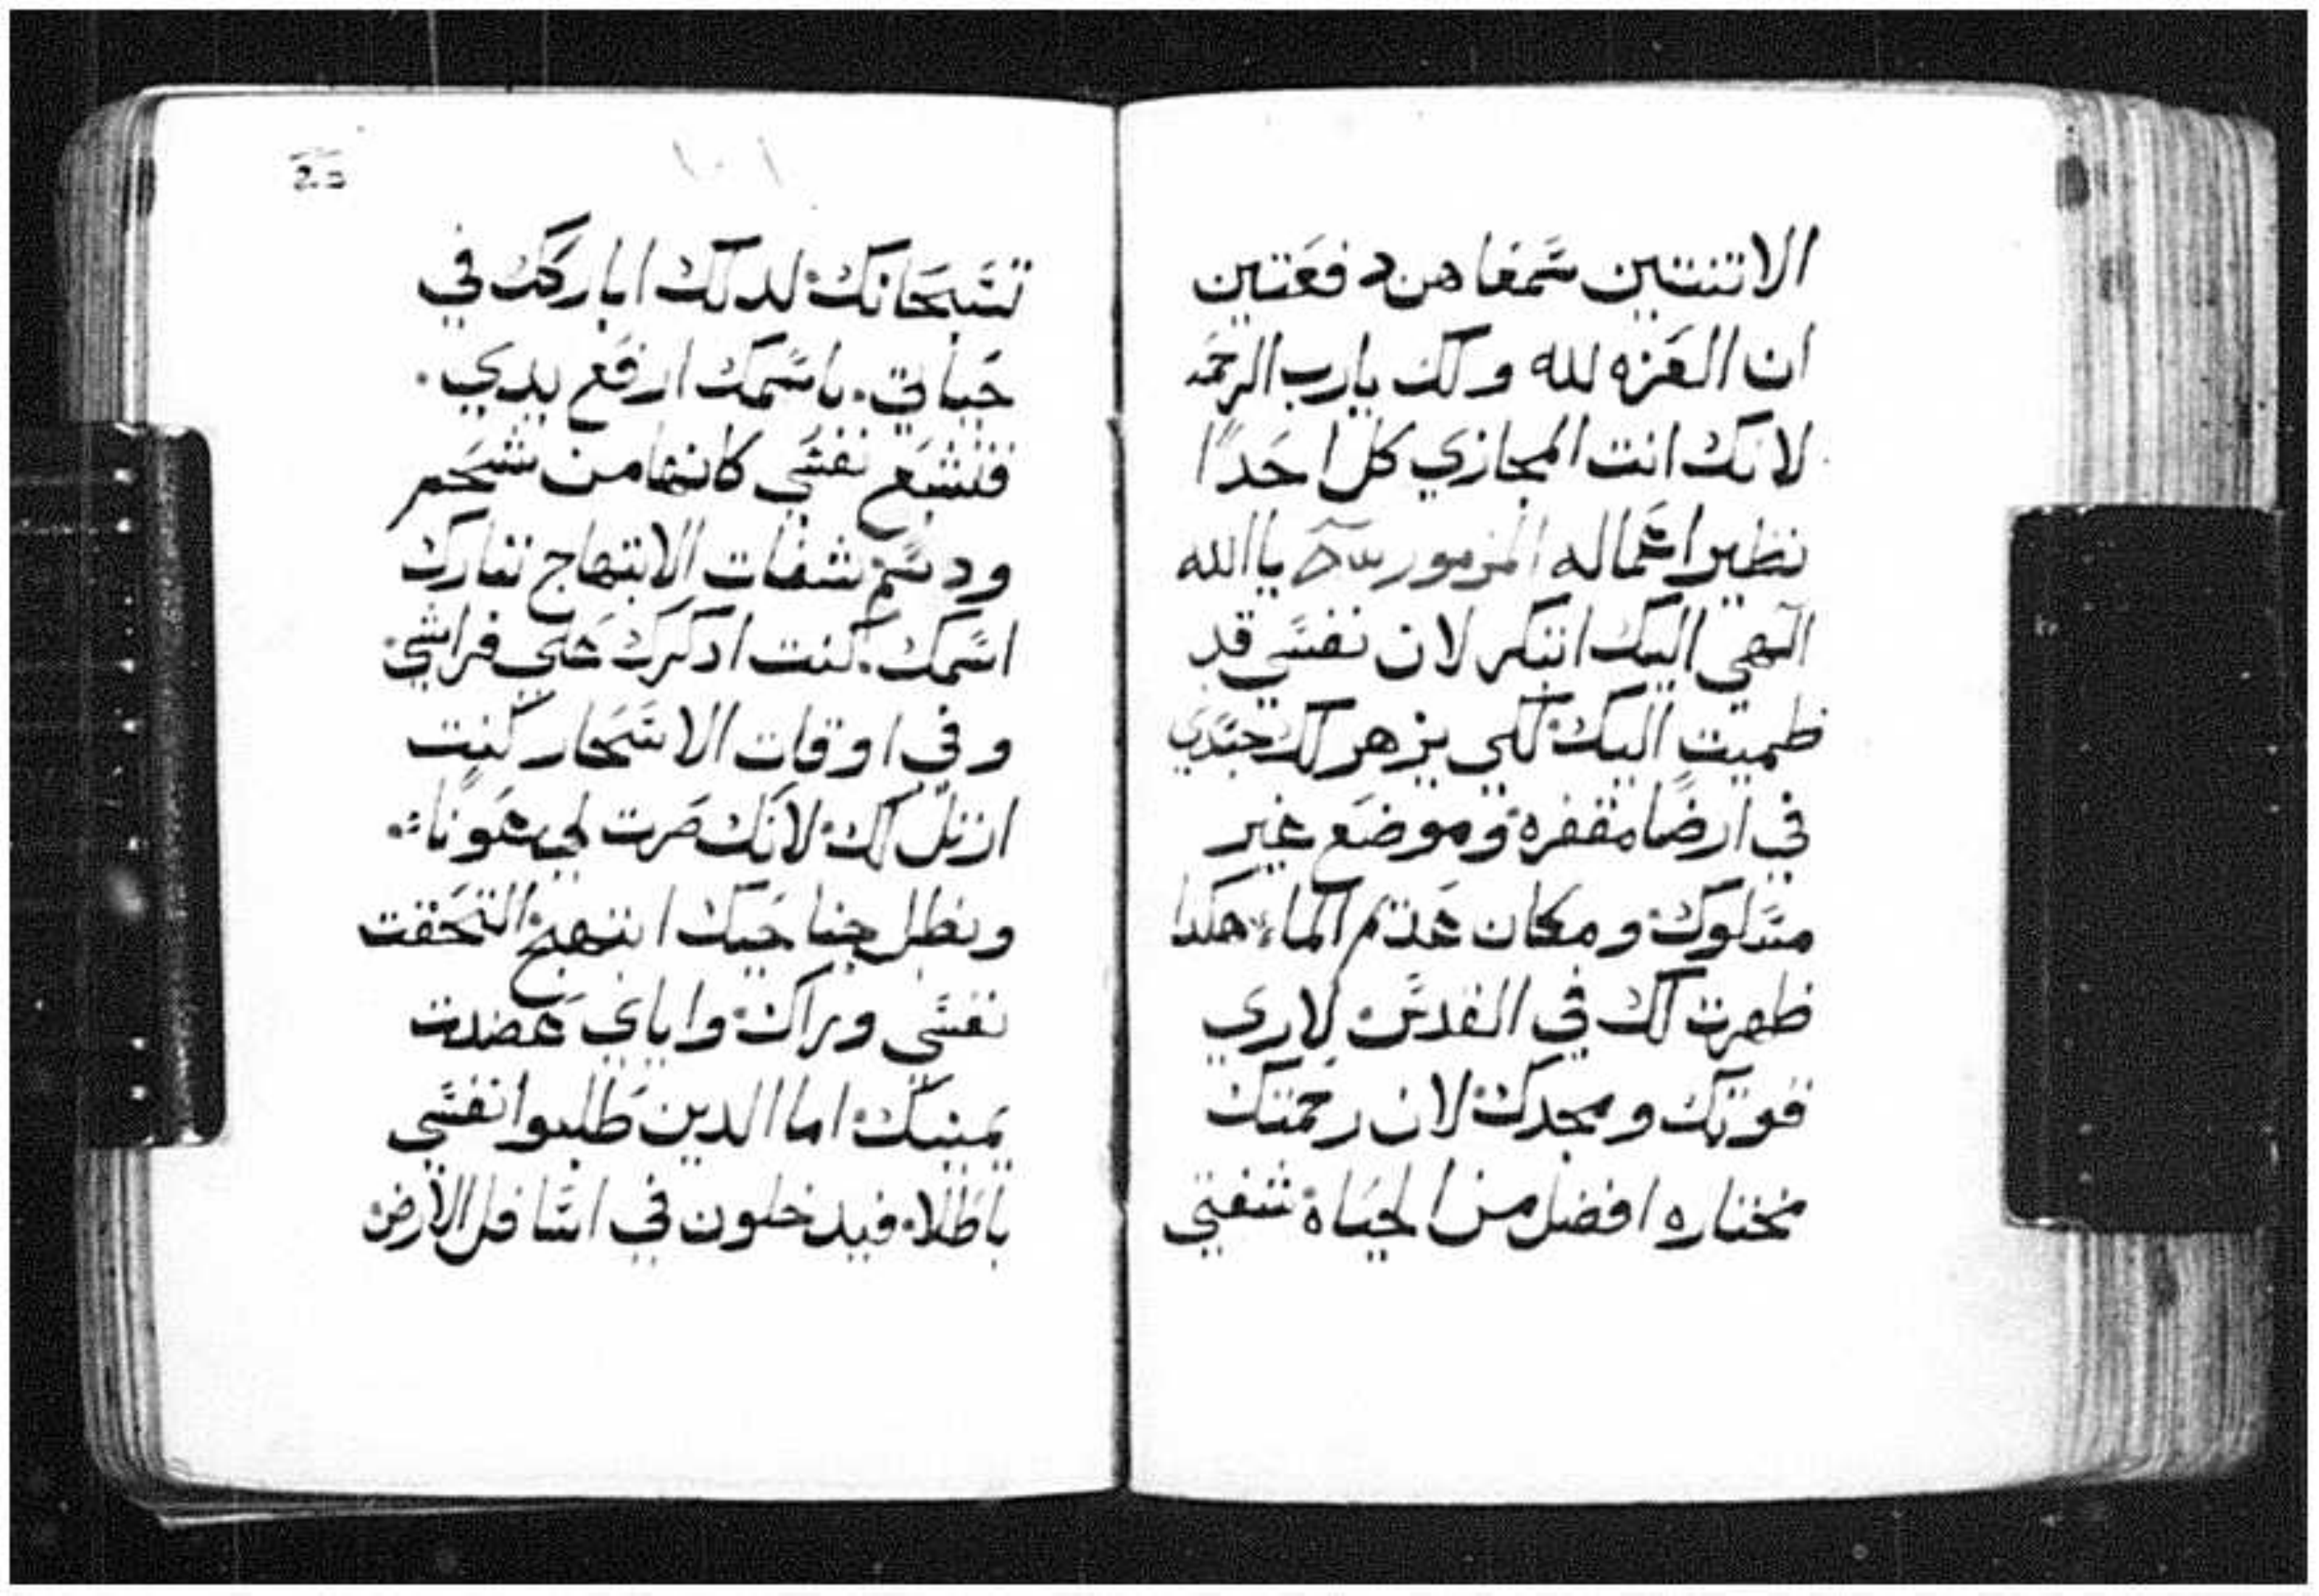 الاتنتين سمعاهن دفعتين
ان العزه لله ولك يارب الرحمه
لانك انت المجازي كل احدًا
نظير اعماله المزمور ياالله
الهي اليك ابتكر لان نفسي قد
ظميت اليك لكي يزهر لك جسدي
في ارضًا مقفره وموضع غير
مسلوك ومكان عدم الماء هكدا
ظهرت لك في القدس لاري
قوتك ومجدك لان رحمتك
مختاره افضل من الحياة شفتي
١٠١
تسبحانك لدلك اباركك في
حياتي. باسمك ارفع يدي.
فتشبع نفسي كانها من شحم
ودسم شفات الابتهاج تبارك
اسمك. كنت ادكرك علي فراشي
وفي اوقات الاسحار كنت
ارتل لك لانك صرت لي عونا
وبظل جناحيك ابتهج التحقت
نفسي وراك واياي عضدت
يمينك اما الدين طلبوا نفسي
باطلا فيدخلون في اسافل الارض